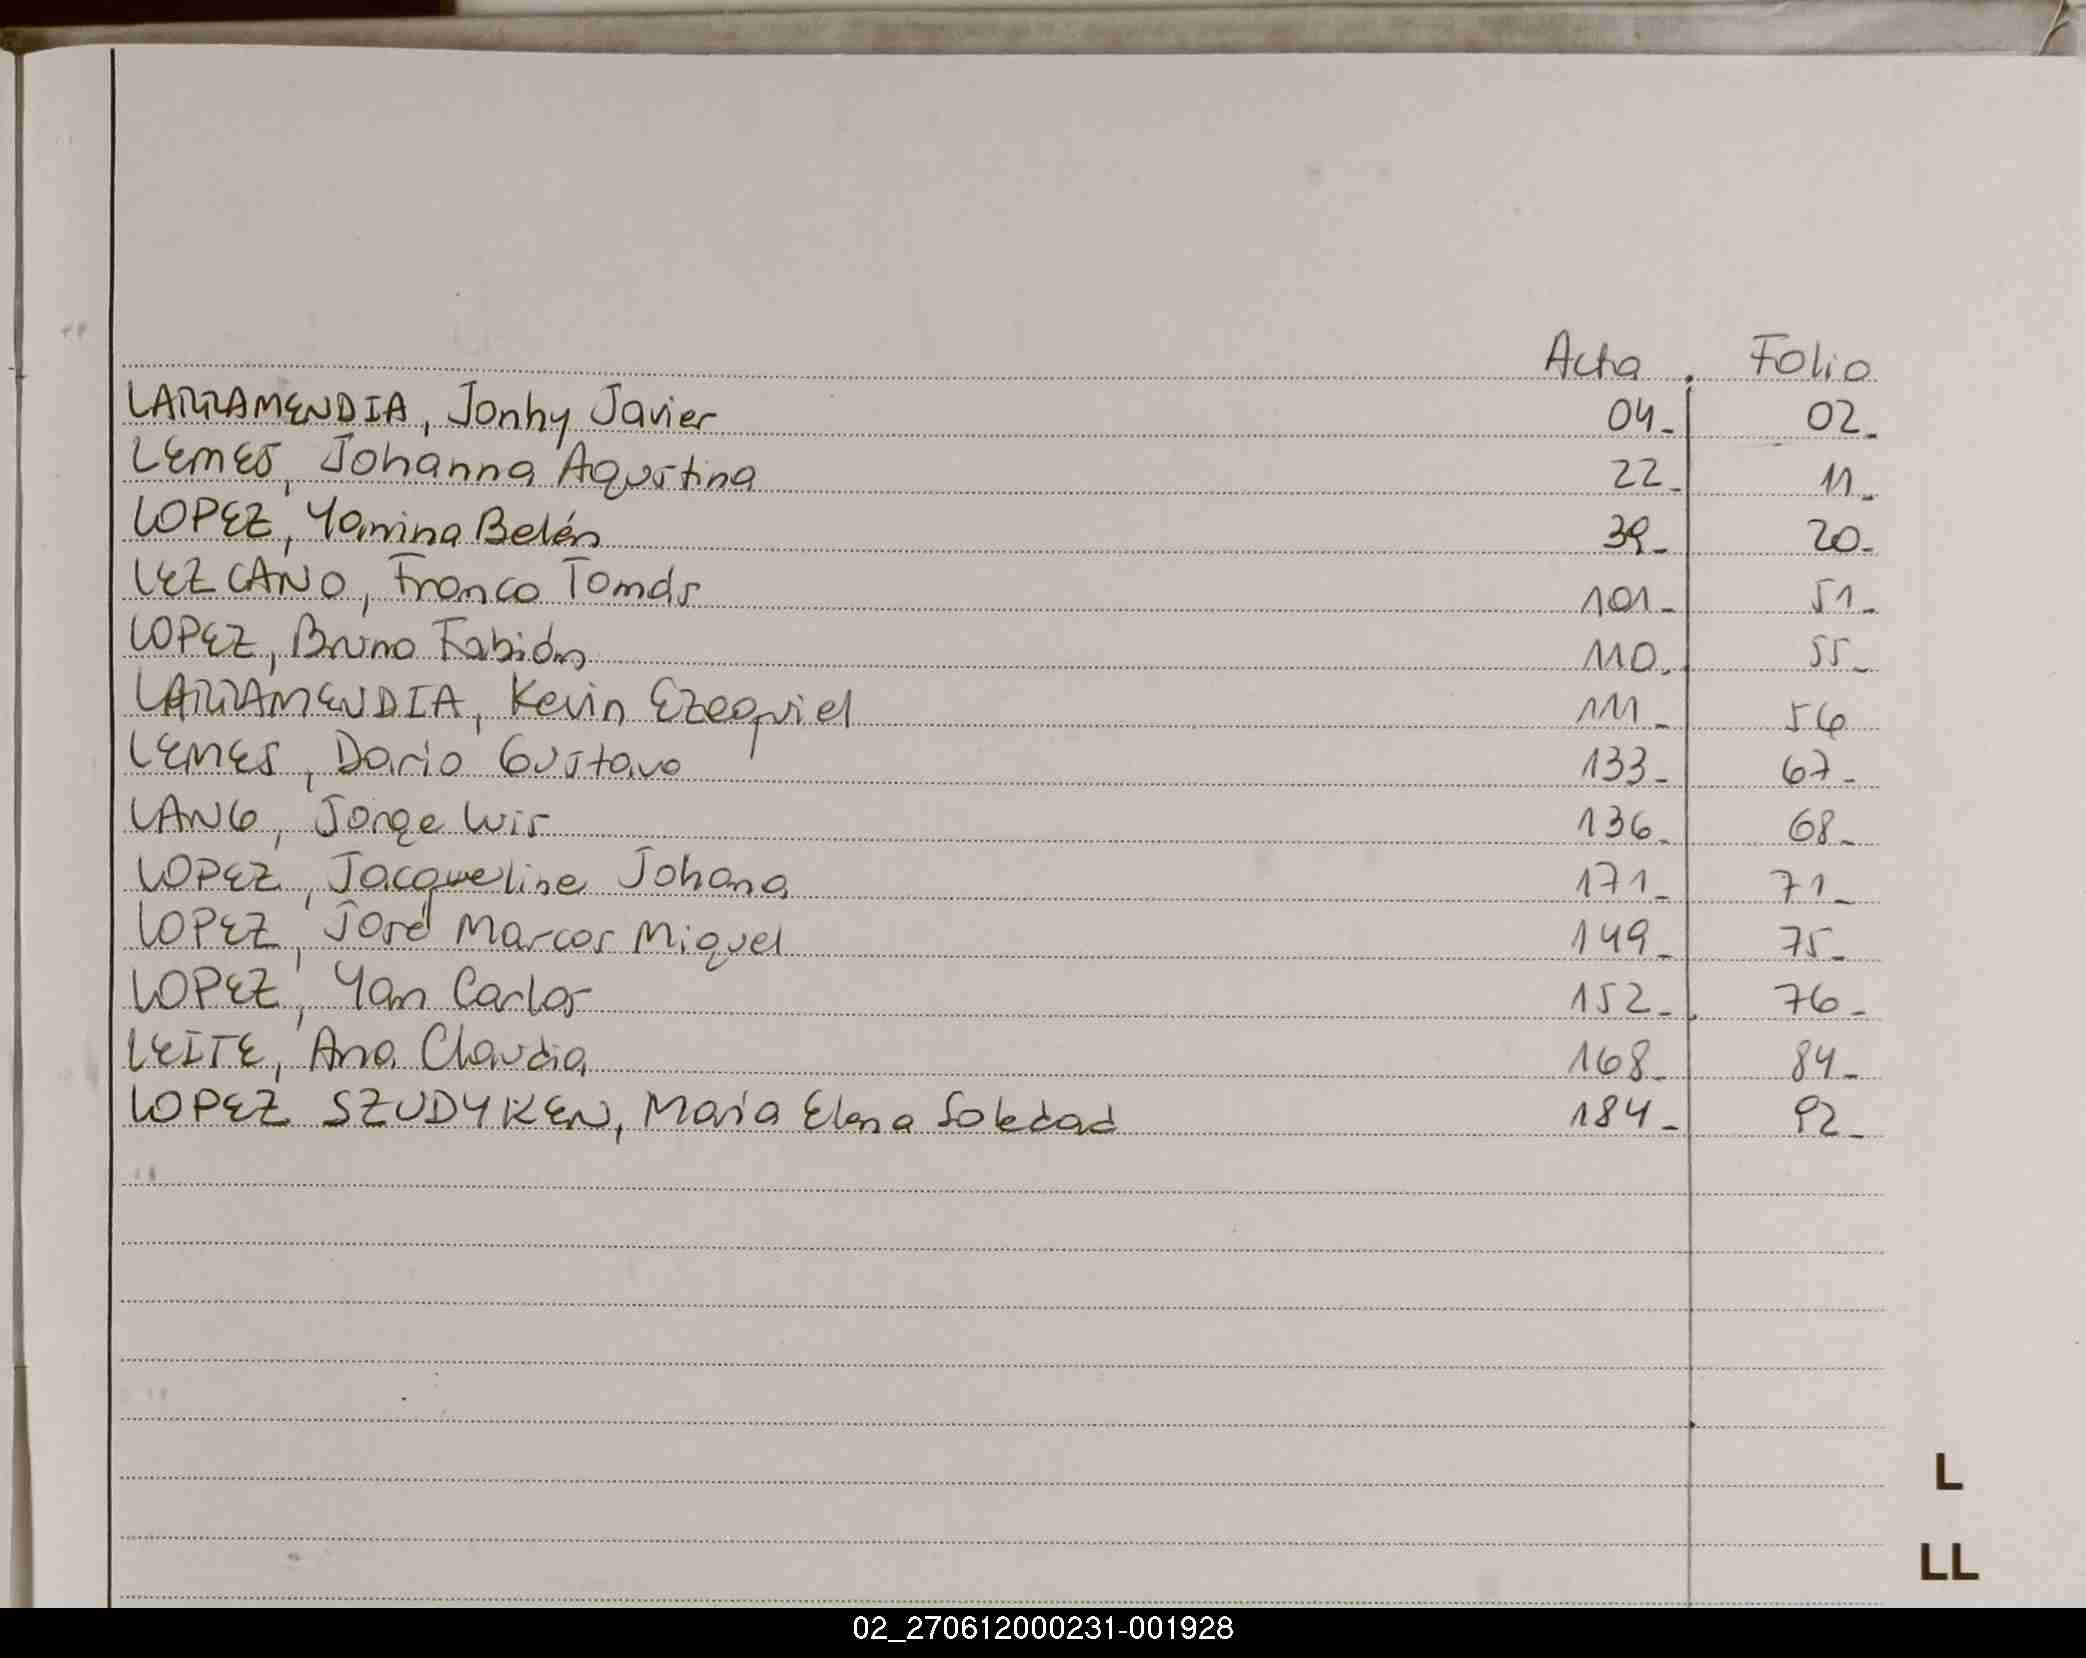 Acta Folio
LARRAMENDIA, Jonhy Javier 04- 02-
LEMES, Johanna Agustina 22- 11-
LOPEZ, Yamina Belén 39- 20-
LEZCANO, Franco Tomás 101- 51-
LOPEZ, Bruno Fabián 110- 55-
LARRAMENDIA, Kevin Ezequiel 111- 56
LEMES, Dario Gustavo 133- 67-
LANG, Jorge Luis 136- 68-
LOPEZ, Jacqueline Johana 171- 71-
LOPEZ, José Marcos Miguel 149- 75-
LOPEZ, Yan Carlos 152- 76-
LEITE, Ana Claudia 168- 84-
LOPEZ SZUDYKEN, Maria Elena Soledad 184- 92-
L
LL
02_270612000231-001928